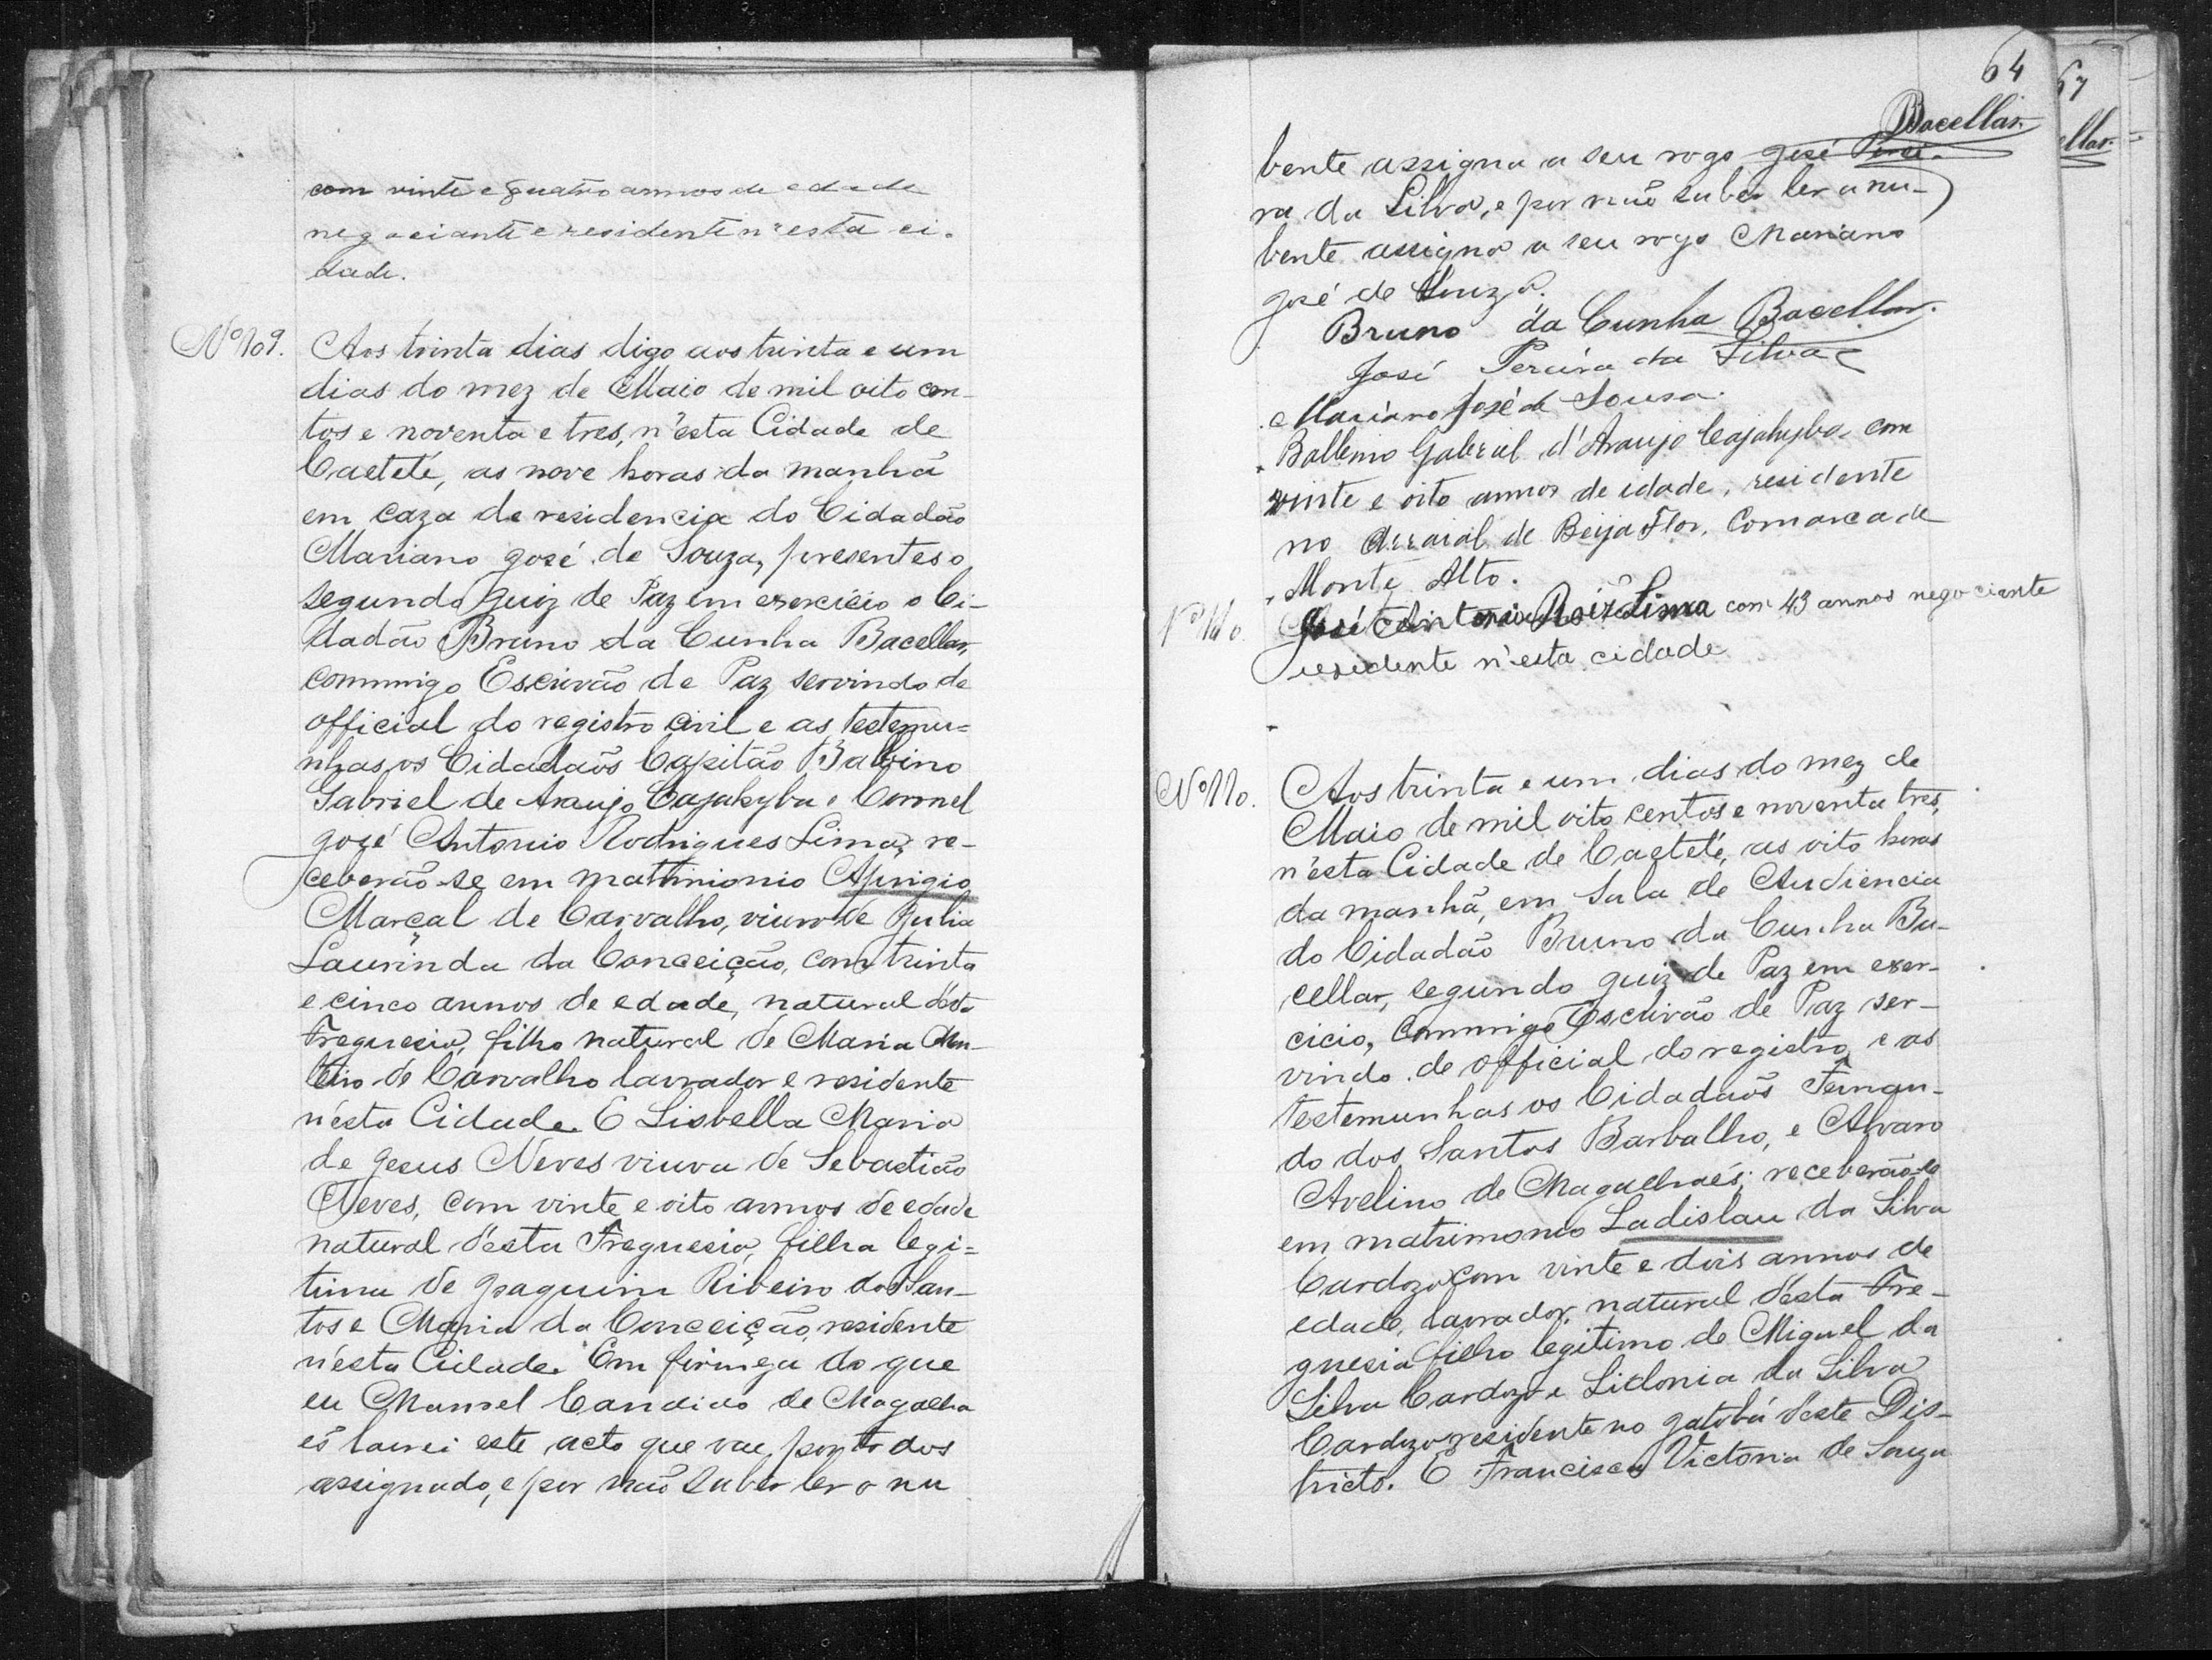 com vinte e quatro annos de edade
negociante e residente n'esta ci-
dade.
Nº 109. Aos trinta dias digo aos trinta e um
dias do mez de Maio de mil oito cen-
tos e noventa e tres, n'esta Cidade de
Caeteté, as nove horas da manhã
em caza de residencia do Cidadão
Mariano José de Souza, presentes o
segundo Juiz de Paz em exercicio o Ci-
dadão Bruno da Cunha Bacellar,
commigo Escrivão de Paz servindo de
official do registro civil e as testemu=
nhas os Cidadaõs Capitão Balbino
Gabriel de Araujo Cajahyba e Coronel
José Antonio Rodrigues Lima, re-
ceberão-se em mattrinionio Aprigio
Marçal de Carvalho, viuvo de Julia
Laurinda da Conceição, com trinta
e cinco annos de edade, natural d'esta
Freguesia, filho natural de Maria Mon-
teiro de Carvalho lavrador e residente
n'esta Cidade. E Lisbella Maria
de Jesus Neves viuva de Sebastião
Neves, com vinte e oito annos de edade
natural d'esta Freguesia, filha legi=
tima de Joaquim Ribeiro dos San-
tos e Maria da Conceição, residente
n'esta Cidade. Em firmeza do que
eu Manoel Candido de Magalha
es lavrei este acto que vae por todos
assignado, e por não saber ler o nu
64
67
Bacellar.
ellar.
bente assigna a seu rogo José Perei-
ra da Silva, e por não saber ler a nu-
bente assigna a seu rogo Mariano
José de Souza.
Bruno da Cunha Bacellar.
José Pereira da Silva
Mariano José de Sousa.
Balbino Gabriel d'Araujo Cajahyba com
vinte e oito annos de idade, residente
no Arraial de Beija Flor, Comarca de
Monte Alto.
Nº 110. José Antonio Roiz Lima com 43 annos negociante
residente n'esta cidade
Nº 110. Aos trinta e um dias do mez de
Maio de mil oito centos e noventa tres,
n'esta Cidade de Caeteté, as oito horas
da manhã, em Sala de Audiencia
do Cidadão Bruno da Cunha Ba-
cellar, segundo Juiz de Paz em exer-
cicio, commigo Escrivão de Paz ser-
vindo de official do registro e as
testemunhas os Cidadaõs Fernan-
do dos Santos Barbalho, e Alvaro
Avelino de Magalhaes; receberão-se
em matrimonio Ladislau da Silva
Cardozo com vinte e dois annos de
edade, lavrador, natural d'esta Fre-
guesia filho legitimo de Miguel da
Silva Cardozo e Sidonia da Silva
Cardozo residente no Jatobá d'este Dis-
tricto. E Francisca Victoria de Souza